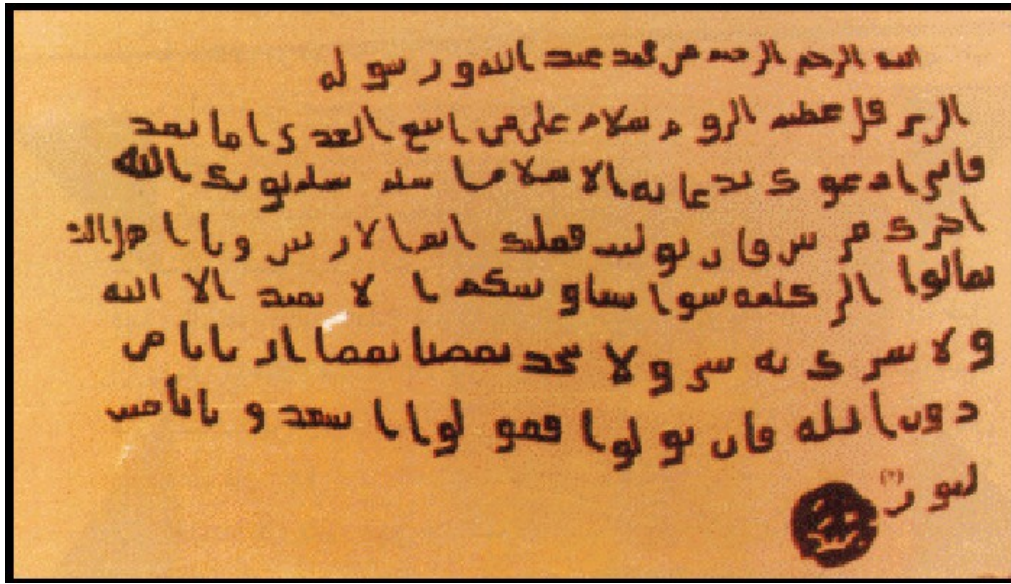 الله الرحمن الرحيم من محمد عبد الله ورسوله
الى هرقل عظيم الروم سلام على من اتبع الهدى اما بعد
فانى ادعوك بدعاية الاسلام اسلم تسلم يوتك الله
اجرك مرتين فان توليت فعليك اثم الاريسين ويا اهل الكتاب
تعالوا الى كلمة سوا بيننا وبينكم ا لا نعبد الا الله
ولا نشرك به شى ولا يتخذ بعضنا بعضا اربابا من
دون الله فان تولوا فقولوا اشهدوا بانا مسـ
لمون (٢)